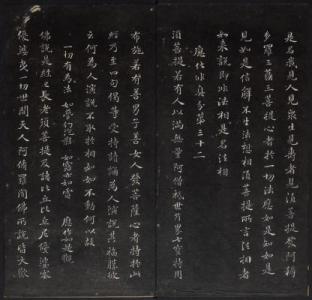 是名我見人見眾生見壽者見須菩提發阿耨
多羅三藐三菩提心者於一切法應如是知如是
見如是信解不生法相須菩提所言法相者
如來說即非法相是名法相
應化非真分第三十二
須菩提若有人以滿無量阿僧祇世界七寶持用
布施若有善男子善女人發菩薩心者持於此
經乃至四句偈等受持讀誦為人演說其福勝彼
云何為人演說不取於相如如不動何以故
一切有為法 如夢幻泡影 如露亦如電 應作如是觀
佛說是經已長老須菩提及諸比丘比丘尼優婆塞
優婆夷一切世間天人阿修羅聞佛所說皆大歡